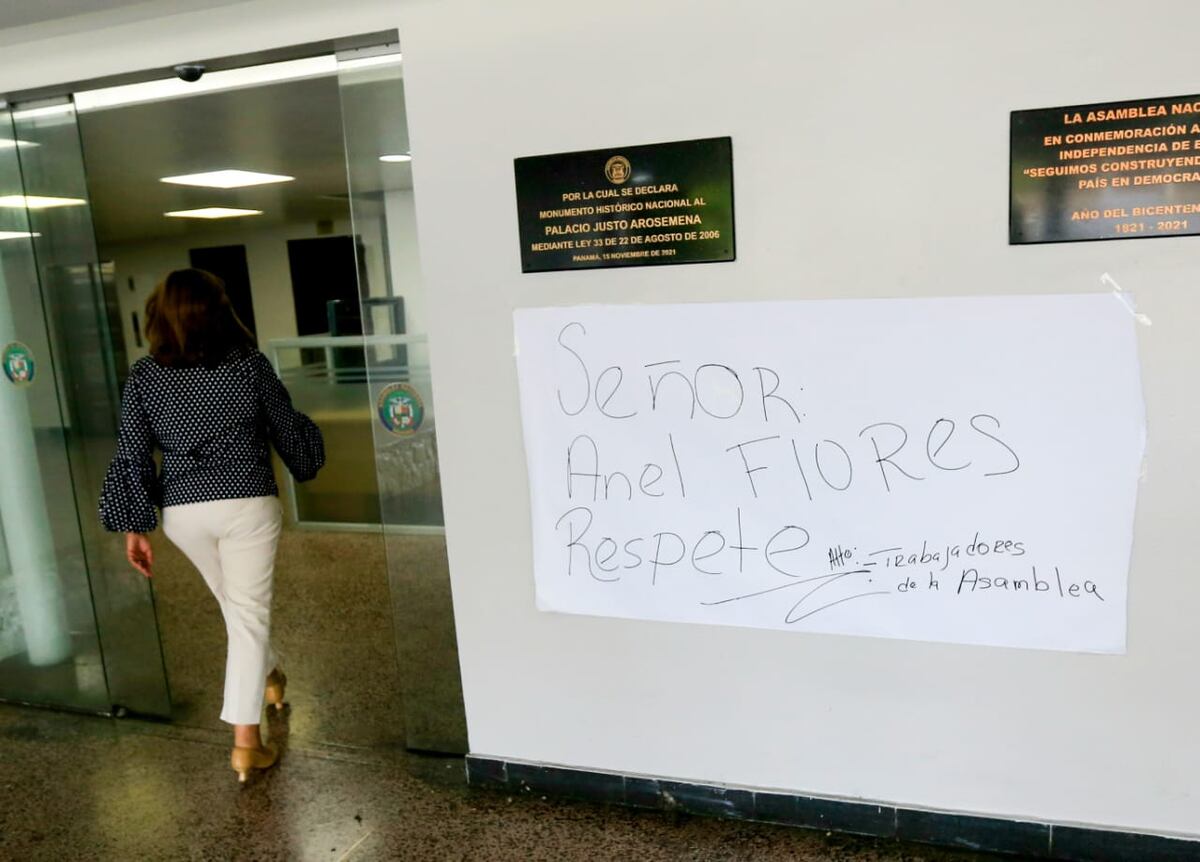 POR LA CUAL SE DECLARA
MONUMENTO HISTÓRICO NACIONAL AL
PALACIO JUSTO AROSEMENA
MEDIANTE LEY 33 DE 22 DE AGOSTO DE 2006
PANAMÁ, 15 NOVIEMBRE DE 2021
LA ASAMBLEA NAC
EN CONMEMORACIÓN A
INDEPENDENCIA DE E
"SEGUIMOS CONSTRUYEND
PAÍS EN DEMOCRA
AÑO DEL BICENTEN
1821 - 2021
SEÑOR:
Anel FlORes
Respete
Atte: - TRabajadoRes
de la Asamblea